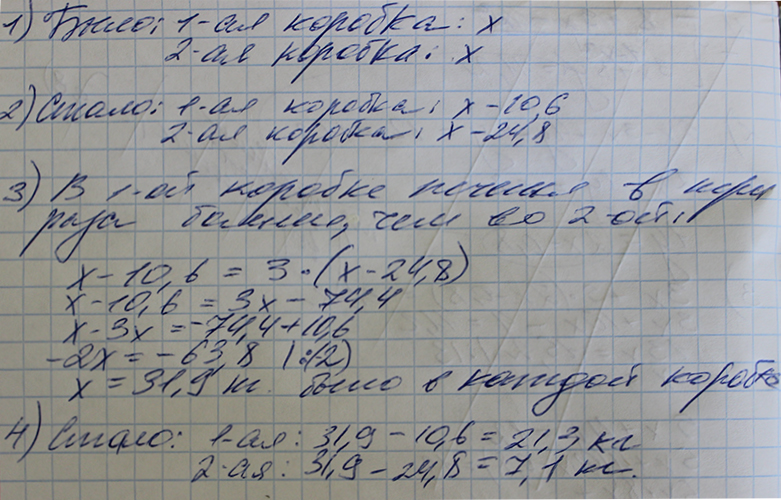 1) Было: 1-ая коробка: x
2-ая коробка: x
2) Стало: 1-ая коробка: x-10,6
2-ая коробка: x-24,8
3) В 1-ой коробке печенья в
раза больше, чем во 2-ой:
x-10,6 = 3·(x-24,8)
x-10,6 = 3x-74,4
x-3x = -74,4+10,6
-2x = -63,8 |:(2)
x = 31,9 кг. было в каждой коробке
4) Стало: 1-ая: 31,9-10,6=21,3 кг
2-ая: 31,9-24,8=7,1 кг.